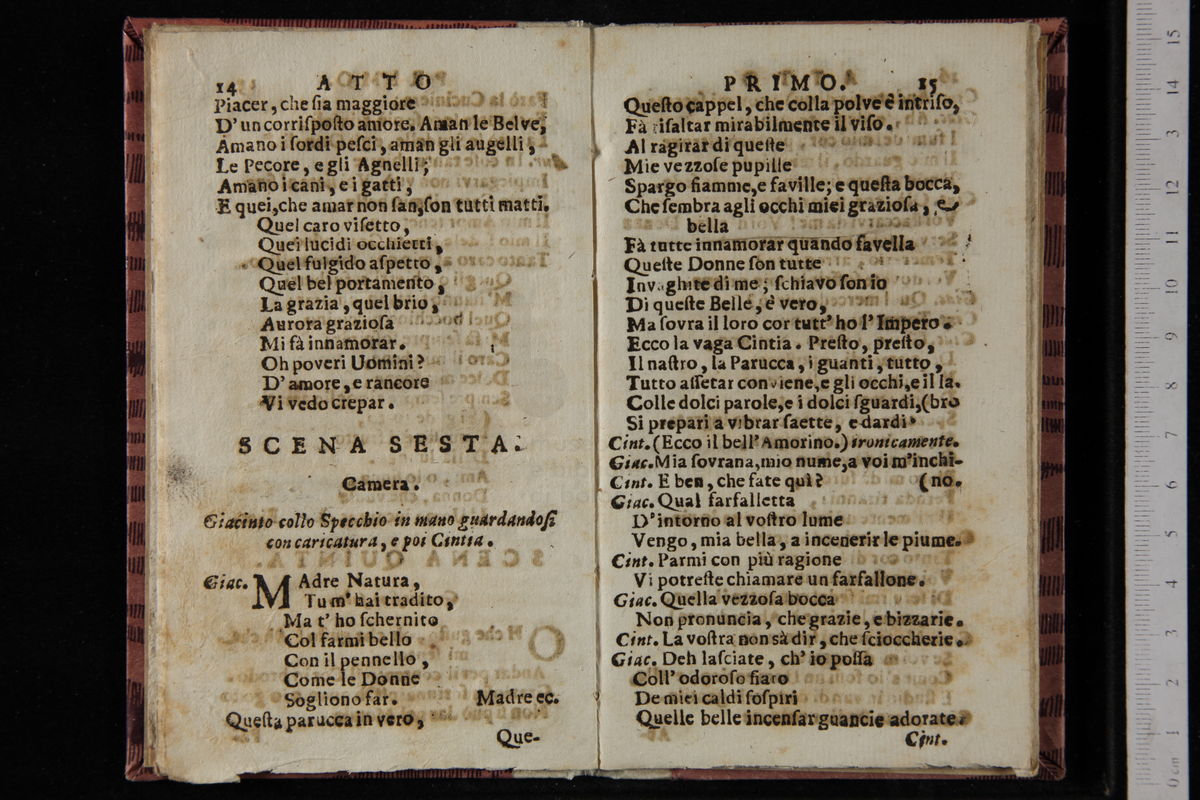 14 ATTO
Piacer, che ſia maggiore
D' un corriſpoſto amore. Aman le Belve,
Amano i ſordi peſci, aman gli augelli,
Le Pecore, e gli Agnelli;
Amano i cani, e i gatti,
E quei, che amar non ſan, ſon tutti matti.
Quel caro viſetto,
Quei lucidi occhietti,
Quel fulgido aſpetto,
Quel bel portamento,
La grazia, quel brio,
Aurora grazioſa
Mi fà innamorar.
Oh poveri Uomini?
D' amore, e rancore
Vi vedo crepar.
SCENA SESTA.
Camera.
Giacinto collo Specchio in mano guardandoſi
con caricatura, e poi Cintia.
Giac. MAdre Natura,
Tu m' hai tradito,
Ma t' ho ſchernito
Col farmi bello
Con il pennello,
Come le Donne
Sogliono far. Madre ec.
Queſta parucca in vero,
Que-
PRIMO. 15
Queſto cappel, che colla polve è intriſo,
Fà riſaltar mirabilmente il viſo.
Al ragirar di queſte
Mie vezzoſe pupille
Spargo fiamme, e faville; e queſta bocca,
Che ſembra agli occhi miei grazioſa, e
bella
Fà tutte innamorar quando favella
Queſte Donne ſon tutte
Invaghite di me; ſchiavo ſon io
Di queſte Belle, è vero,
Ma ſovra il loro cor tutt' ho l' Impero.
Ecco la vaga Cintia. Preſto, preſto,
Il naſtro, la Parucca, i guanti, tutto,
Tutto aſſetar conviene, e gli occhi, e il la-
Colle dolci parole, e i dolci ſguardi, (bro
Si prepari a vibrar ſaette, e dardi.
Cint. (Ecco il bell' Amorino.) ironicamente.
Giac. Mia ſovrana, mio nume, a voi m'inchi-
Cint. E ben, che fate quì? (no.
Giac. Qual farfalletta
D' intorno al voſtro lume
Vengo, mia bella, a incenerir le piume.
Cint. Parmi con più ragione
Vi potreſte chiamare un farfallone.
Giac. Quella vezzoſa bocca
Non pronuncia, che grazie, e bizzarie.
Cint. La voſtra non sà dir, che ſcioccherie.
Giac. Deh laſciate, ch' io poſſa
Coll' odoroſo fiato
De miei caldi ſoſpiri
Quelle belle incenſar guancie adorate.
Cint.